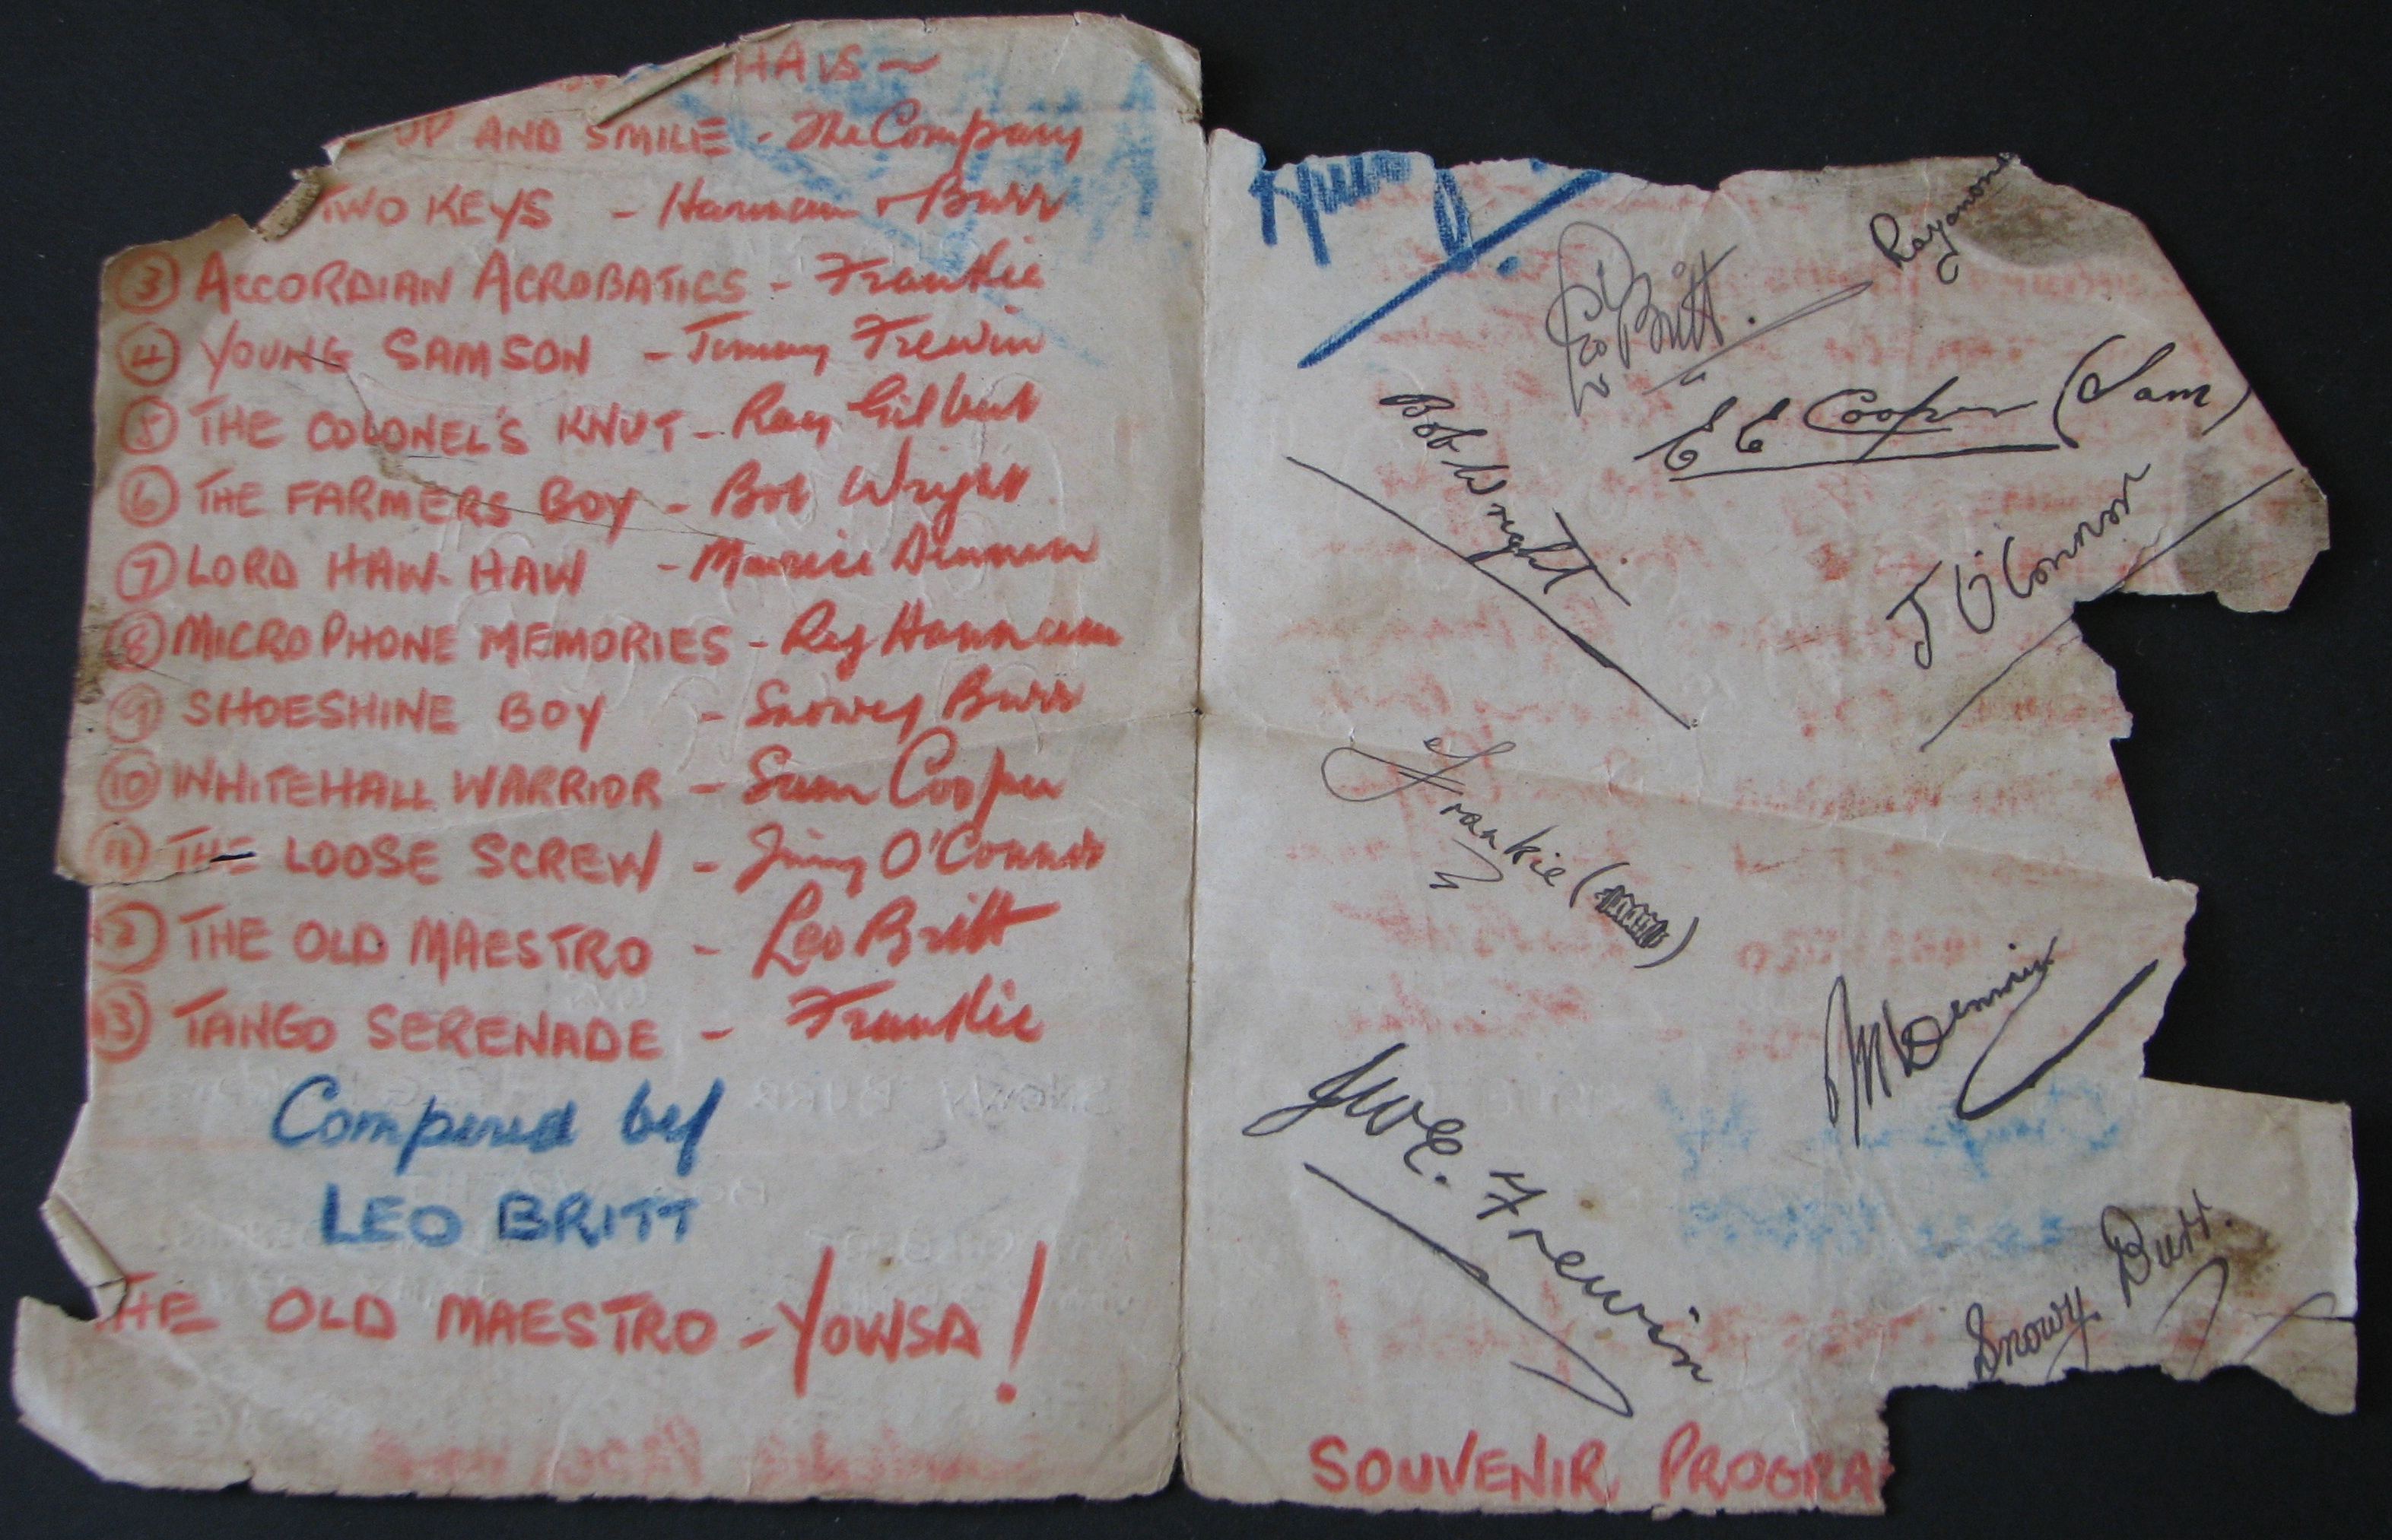 UP AND SMILE - The Company
TWO KEYS - Hannam & Burr
③ ACCORDIAN ACROBATICS - Frankie
④ YOUNG SAMSON - Jimmy Frewin
⑤ THE COLONEL'S KNUT - Ray Gilbert
⑥ THE FARMERS BOY - Bob Wright
⑦ LORD HAW-HAW - Maurice Dennen
⑧ MICROPHONE MEMORIES - Reg Hannam
⑨ SHOESHINE BOY - Snowey Burr
⑩ WHITEHALL WARRIOR - Sam Cooper
⑪ THE LOOSE SCREW - Jimmy O'Connor
2 THE OLD MAESTRO - Leo Britt
3 TANGO SERENADE - Frankie
Compered by
LEO BRITT
HE OLD MAESTRO - YOWSA!
Raymond
Leo Britt.
E E Cooper (Sam)
Bob Wright
J O'Connor
Frankie ( )
JWE. Frewin
Snowy Burr.
SOUVENIR PROGRA